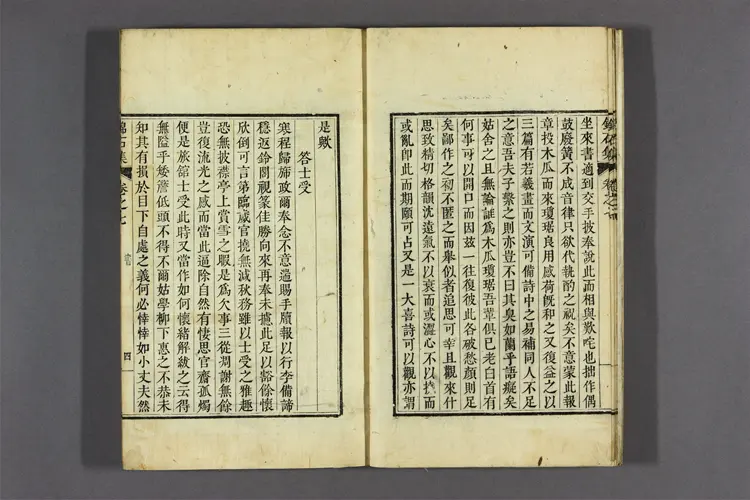 坐來書適到交手披奉說此而相與歎咤也拙作偶
鼓廢簧不成音律只欲代執酌之視矣不意蒙此報
章投木瓜而來瓊琚良用感荷旣和之又復益之以
三篇有若羲畫而文演可備詩中之易補同人不足
之意吾夫子繫之則亦豈不曰其臭如蘭乎語癡矣
姑舍之且無論誰爲木瓜瓊琚吾輩俱已老白首有
何事可以開口而因玆一往復彼此各破愁顏則足
矣鄙作之初不匿之而擧似者追思可幸且觀來什
思致精切格韻沈遠氣不以衰而或澀心不以
而
或亂卽此而期頤可占又是一大喜詩可以觀亦謂
是歟
答士受
寒程歸旆政爾奉念不意遄賜手牘報以行李備諦
穩返鈴閣視篆佳勝向來再奉未攄此足以豁餘懷
欣倒可言第臨歲官撓無減秋務雖以士受之雅趣
恐無披襟亭上賞雪之暇是爲欠事三從凋謝無餘
豈復流光之感而當此逼除自然有悽思官齋孤燭
便是旅舘士受此時又當作如何懷緖解紱之云得
無隘乎矮簷低頭不得不爾姑學柳下惠之不恭未
知其有損於目下自處之義何必悻悻如小丈夫然
卷之七
四